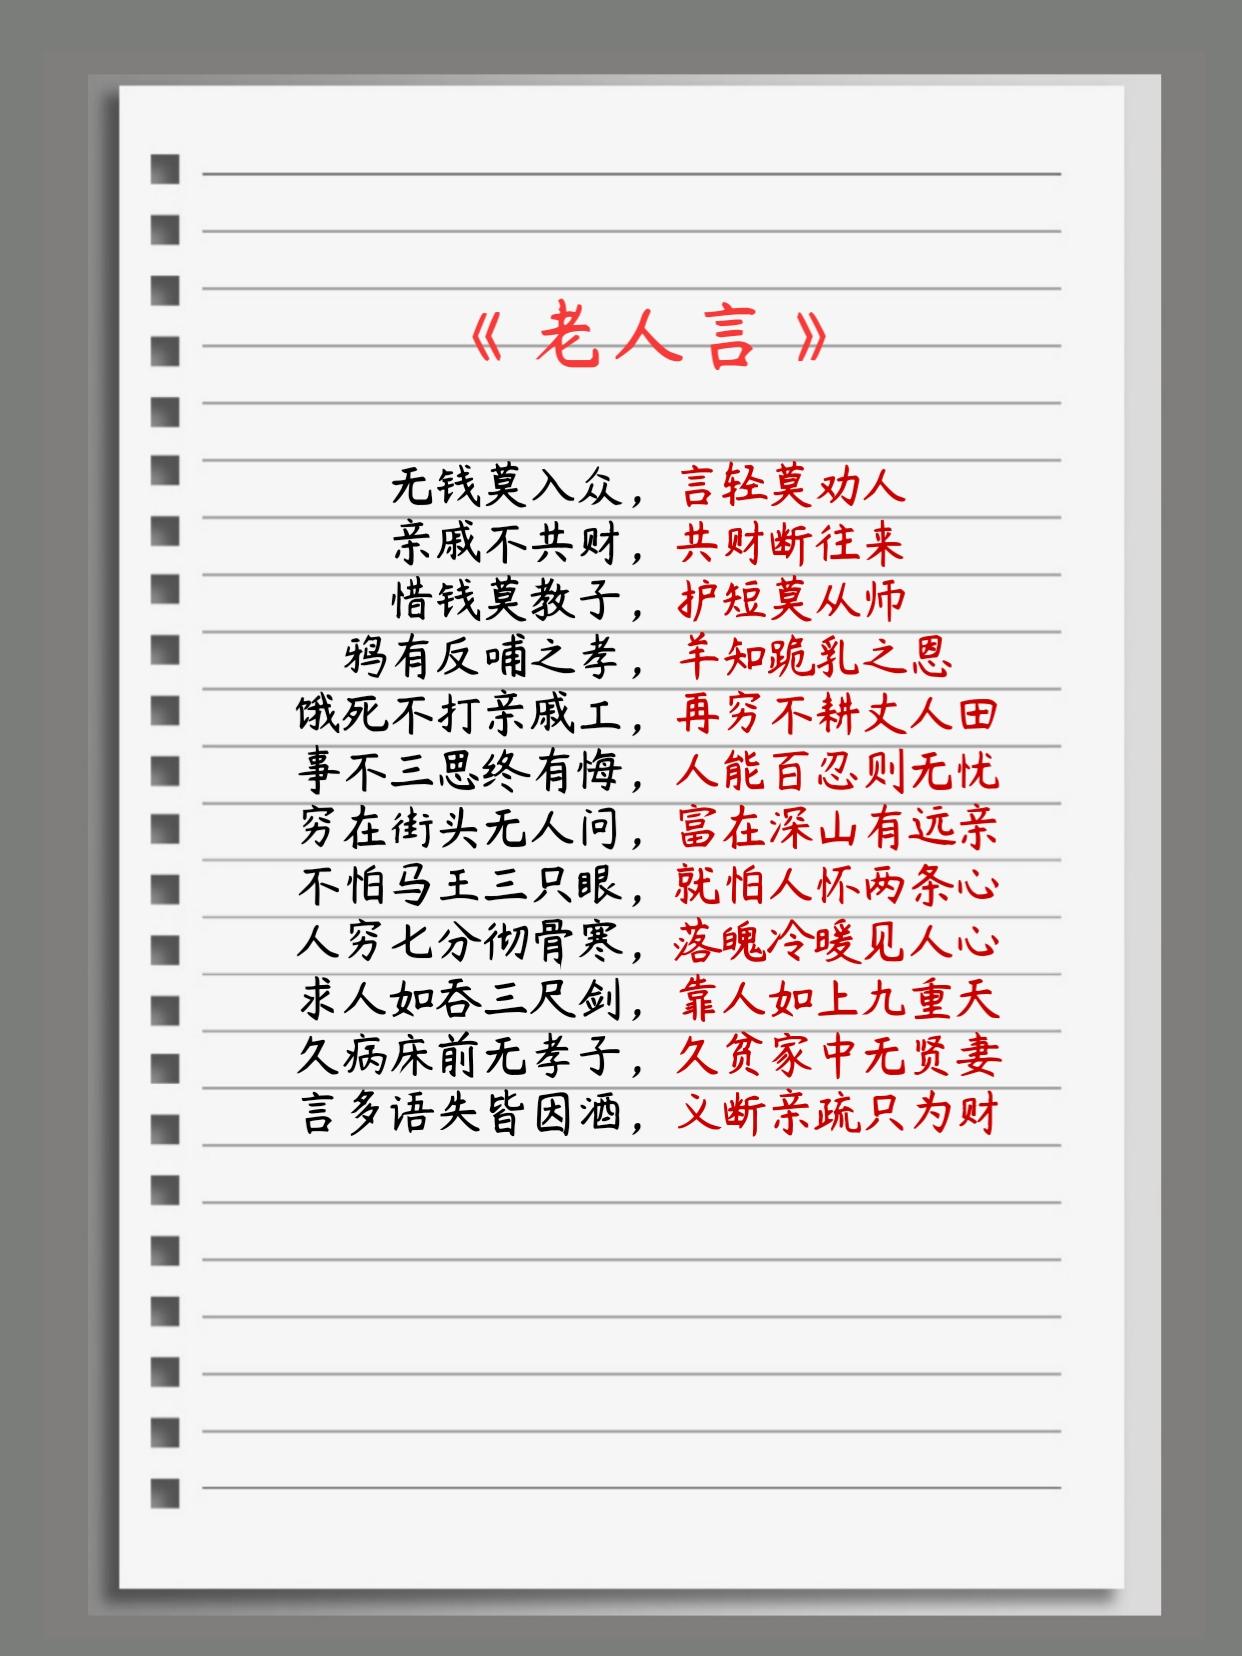 《老人言》
无钱莫入众，言轻莫劝人
亲戚不共财，共财断往来
惜钱莫教子，护短莫从师
鸦有反哺之孝，羊知跪乳之恩
饿死不打亲戚工，再穷不耕丈人田
事不三思终有悔，人能百忍则无忧
穷在街头无人问，富在深山有远亲
不怕马王三只眼，就怕人怀两条心
人穷七分彻骨寒，落魄冷暖见人心
求人如吞三尺剑，靠人如上九重天
久病床前无孝子，久贫家中无贤妻
言多语失皆因酒，义断亲疏只为财